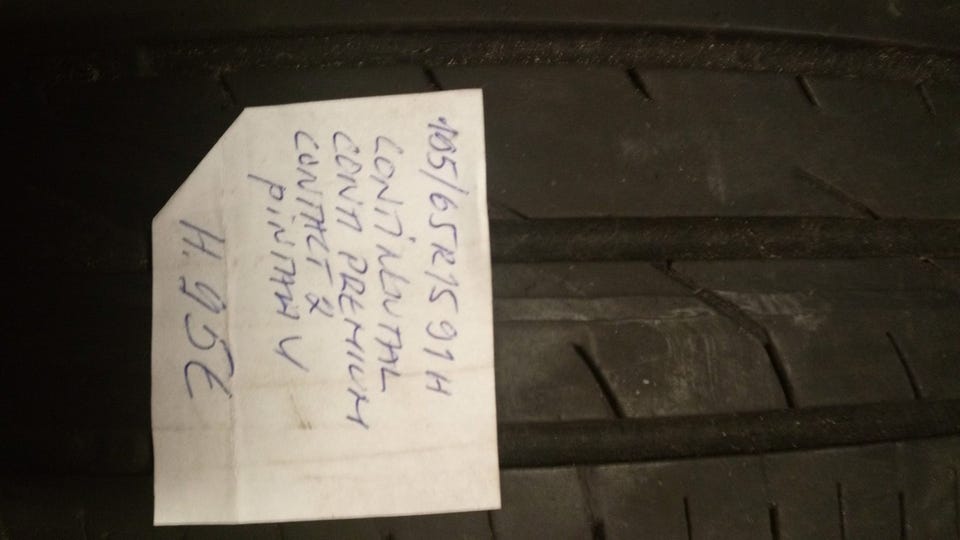 195/65R15 91H
CONTINENTAL
CONTI PREMIUM
CONTACT 2
H. 95€